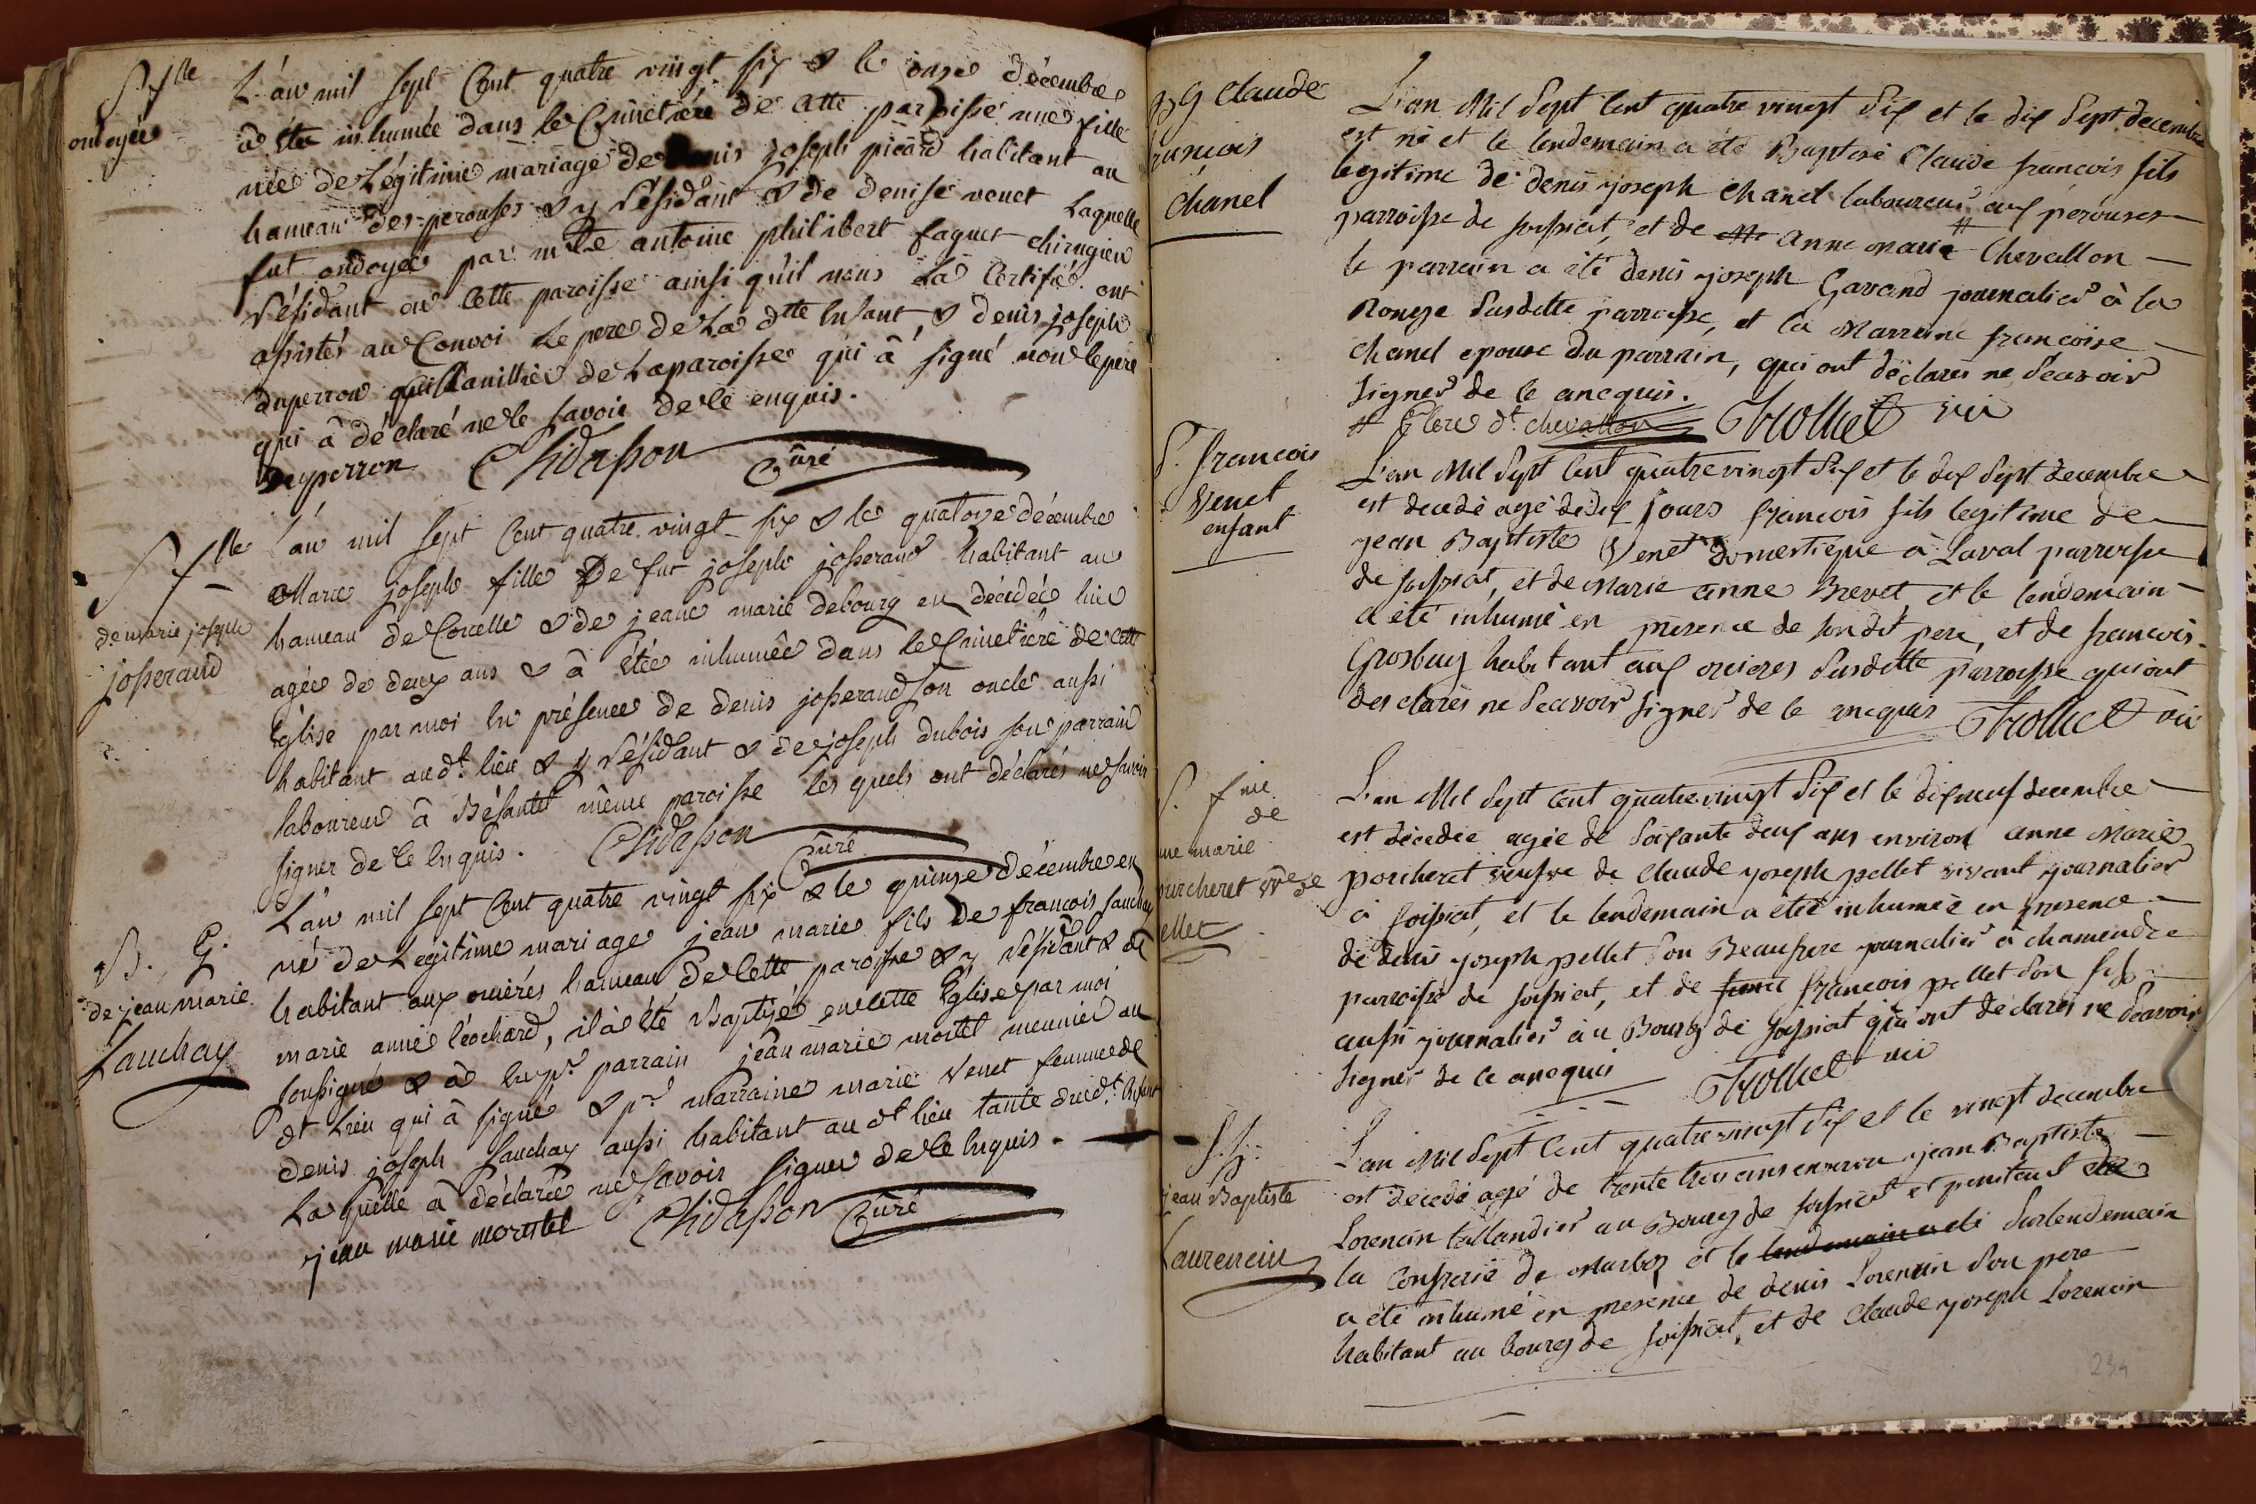 S. f.lle
ondoyée
L'an mil sept Cent quatre vingt six & le onze décembre
a été inhumée dans le Cimetiére de cette paroisse une fille
née de Légitime mariage de denis joseph picard habitant au
hameau des perouses & y Résidant & de denise venet Laquelle
fut ondoyée par m.tre antoine philibert faguet chirugien
Résidant en Cette paroisse ainsi qu'il nous L'a Certifié ont
assistés au Convoi Le pere de La d.tte Enfant, & denis joseph
duperron de La paroisse qui à signé non le pere
qui à déclaré ne le savoir de Ce enquis.
Duperron Chidasson Curé
S. f.lle
de marie joseph
josserand
L'an mil sept Cent quatre vingt six & le quatorze décembre
Marie joseph fille De fut joseph josserand habitant au
hameau de Corcelle & de jeane marie debourg en décédée hier
agée de deux ans & à étée inhumée dans le Cimetière de cette
Eglise par moi En présence de denis josserand son oncle aussi
habitant aud.t lieu & y Résidant & de joseph dubois son parrain
laboureur à Bésantet même paroisse les quels ont déclarés ne savoir
signer de Ce Enquis. Chidasson Curé
B. G.
de jean marie
Sauchay
L'an mil sept Cent quatre vingt six & le quinze décembre en
né de Légitime mariage jean marie fils de francois Sauchay
habitant aux oniérés hameau de Cette paroisse & y Résidant & de
marie anne léochard, il à été Baptizé en cette Eglise par moi
soussigné & à Eu p.r parrain jean marie mortel meunier au
dt Lieu qui à signé & p.r marraine marie venet femme de
denis joseph Sauchay aussi habitant au dt lieu tante dud.t Enfant
La quelle à déclarée ne savoir signer de Ce Enquis.
jean marie moretel Chidasson Curé
B G Claude
francois
Chanel
L'an Mil Sept Cent quatre vingt Six et le dix Sept decembre
est né et le lendemain a été Baptisé Claude francois fils
legitime de denis joseph Chanel laboureur aux pérouses
parroisse de soissiat, et de anne marie # Chevallon
le parrain a été denis joseph Gavand journalier à la
Rongze Susditte parroisse, et la Marraine francoise
Chanel epouse du parrain, qui ont declarés ne Scavoir
signer de ce enequis.
# Clere d.t chevallon Thollet vic
S. francois
Venet
enfant
L'an Mil Sept Cent quatre vingt Six et le dix Sept decembre
est decedé agé de dix jours francois fils legitime de
jean Baptiste Venet domestique à Laval parroisse
de soissiat, et de marie anne Brevet et le lendemain
a été inhumé en presence de son dit pere, et de francois
Grosbuy habitant aux orieres Susditte parroisse qui ont
des clarés ne Scavoir signer de ce enequis Thollet vic
S. f.me
de
ne marie
porcheret v.ve de
ellet
L'an Mil Sept Cent quatre vingt Six et le dix neuf decembre
est décedée agée de Soixante deux ans environ anne Marie
porcheret veufve de Claude joseph pellet vivant journalier
à soissiat, et le lendemain a eté inhumée en presence
de denis joseph pellet Son Beaufrere journalier à chamendre
parroisse de soissiat, et de francois pellet Son fils
aussi journalier au Bourg de soissiat qui ont déclarés ne Scavoir
signer de ce enequis Thollet vic
S. h.
jean Baptiste
Laurencin
L'an Mil Sept Cent quatre vingt Six et le vingt decembre
est decedé agé de trente trois ans environ jean Baptiste
Lorencin tallandier au Bourg de soissiat et penitent de
la confrerie de marboz et le lendemain a eté Surlendemain
a été inhumé en presence de denis Lorencin Son pere
habitant au bourg de soissiat, et de Claude joseph Lorencin